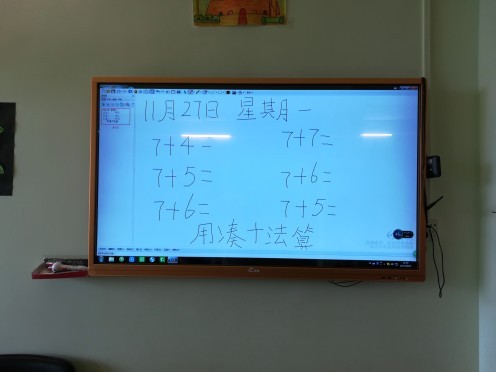 11月27日 星期一
7+4= 7+7=
7+5= 7+6=
7+6= 7+5=
用凑十法算